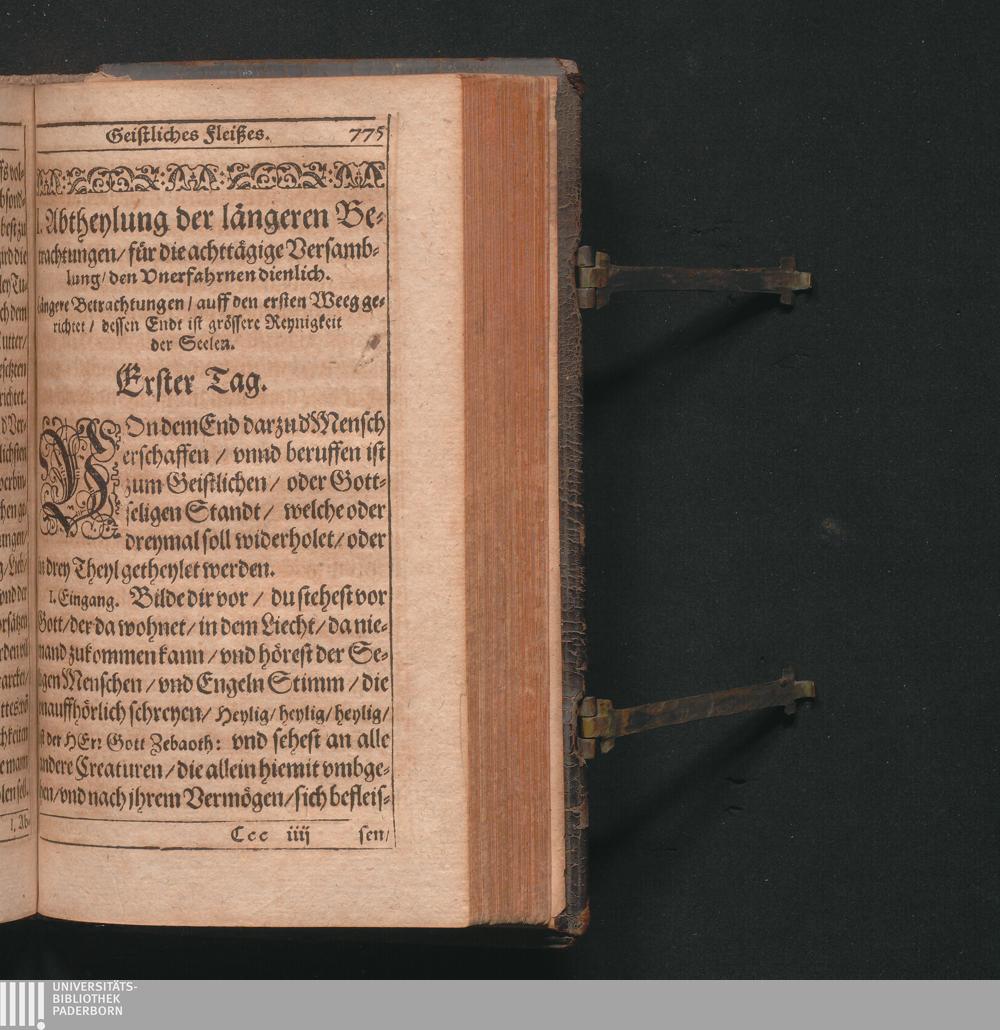 Geistliches Fleißes. 775
I. Abtheylung der längeren Be-
trachtungen/ für die achttägige Versamb-
lung/ den Vnerfahrnen dienlich.
Längere Betrachtungen/ auff den ersten Weeg ge-
richtet/ dessen Endt ist grössere Reynigkeit
der Seelen.
Erster Tag.
VOn dem End darzu d' Mensch
erschaffen / vnnd beruffen ist
zum Geistlichen/ oder Gott-
seligen Standt/ welche oder
dreymal soll widerholet/ oder
in drey Theyl getheylet werden.
I. Eingang. Bilde dir vor / du stehest vor
Gott/ der da wohnet/ in dem Liecht/ da nie-
mand zukommen kann/ vnd hörest der Se-
ligen Menschen/ vnd Engeln Stimm/ die
vnauffhörlich schreyen/ Heylig/ heylig/ heylig/
ist der HErr Gott Zebaoth: vnd sehest an alle
andere Creaturen/ die allein hiemit vmbge-
hen/ vnd nach jhrem Vermögen/ sich befleis-
Ccc iiij sen/
I. Ab-
UNIVERSITÄTS-
BIBLIOTHEK
PADERBORN